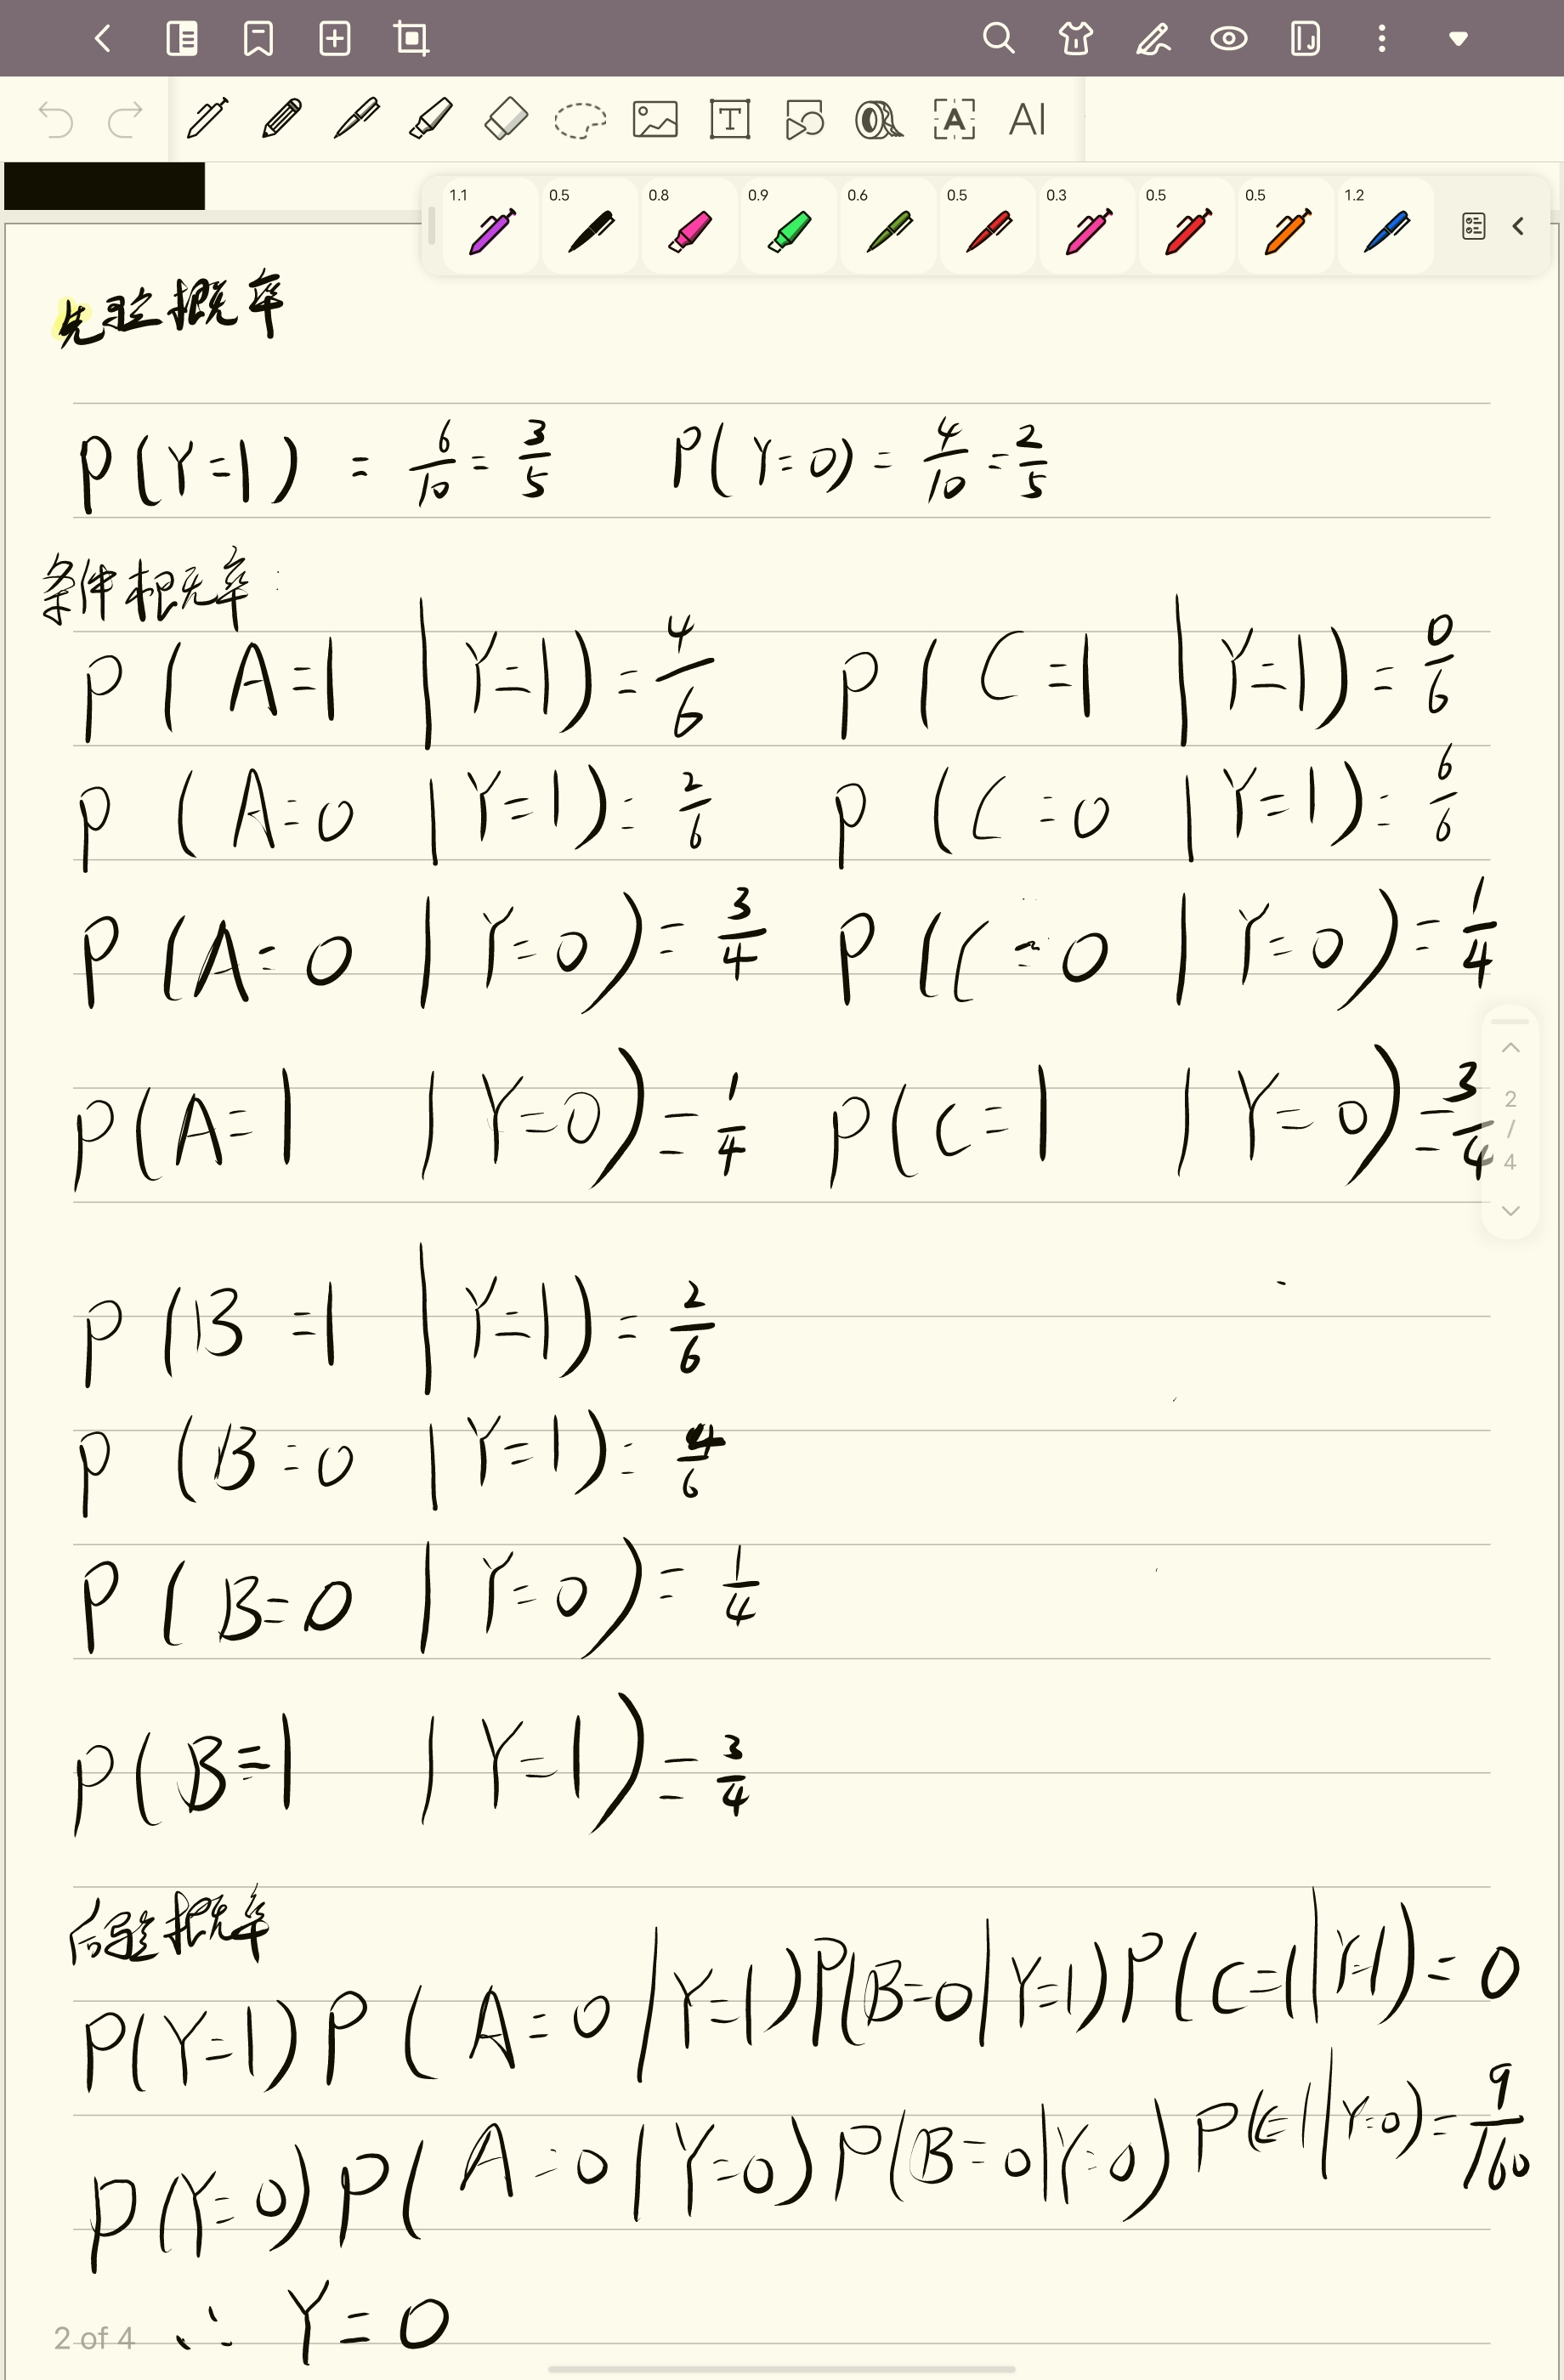 AI
1.1 0.5 0.8 0.9 0.6 0.5 0.3 0.5 0.5 1.2
先验概率
P(Y=1) = 6/10 = 3/5 P(Y=0) = 4/10 = 2/5
条件概率:
P(A=1 | Y=1) = 4/6 P(C=1 | Y=1) = 0/6
P(A=0 | Y=1) = 2/6 P(C=0 | Y=1) = 6/6
P(A=0 | Y=0) = 3/4 P(C=0 | Y=0) = 1/4
P(A=1 | Y=0) = 1/4 P(C=1 | Y=0) = 3/4
2
/
4
P(B=1 | Y=1) = 2/6
P(B=0 | Y=1) = 4/6
P(B=0 | Y=0) = 1/4
P(B=1 | Y=1) = 3/4
后验概率
P(Y=1)P(A=0|Y=1)P(B=0|Y=1)P(C=1|Y=1) = 0
P(Y=0)P(A=0|Y=0)P(B=0|Y=0)P(C=1|Y=0) = 9/160
∴ Y=0
2 of 4